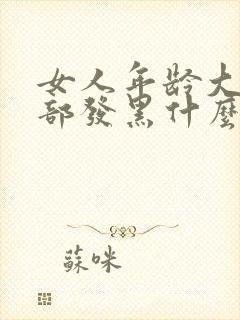 女人年龄大
部發黑什麼
蘇咪